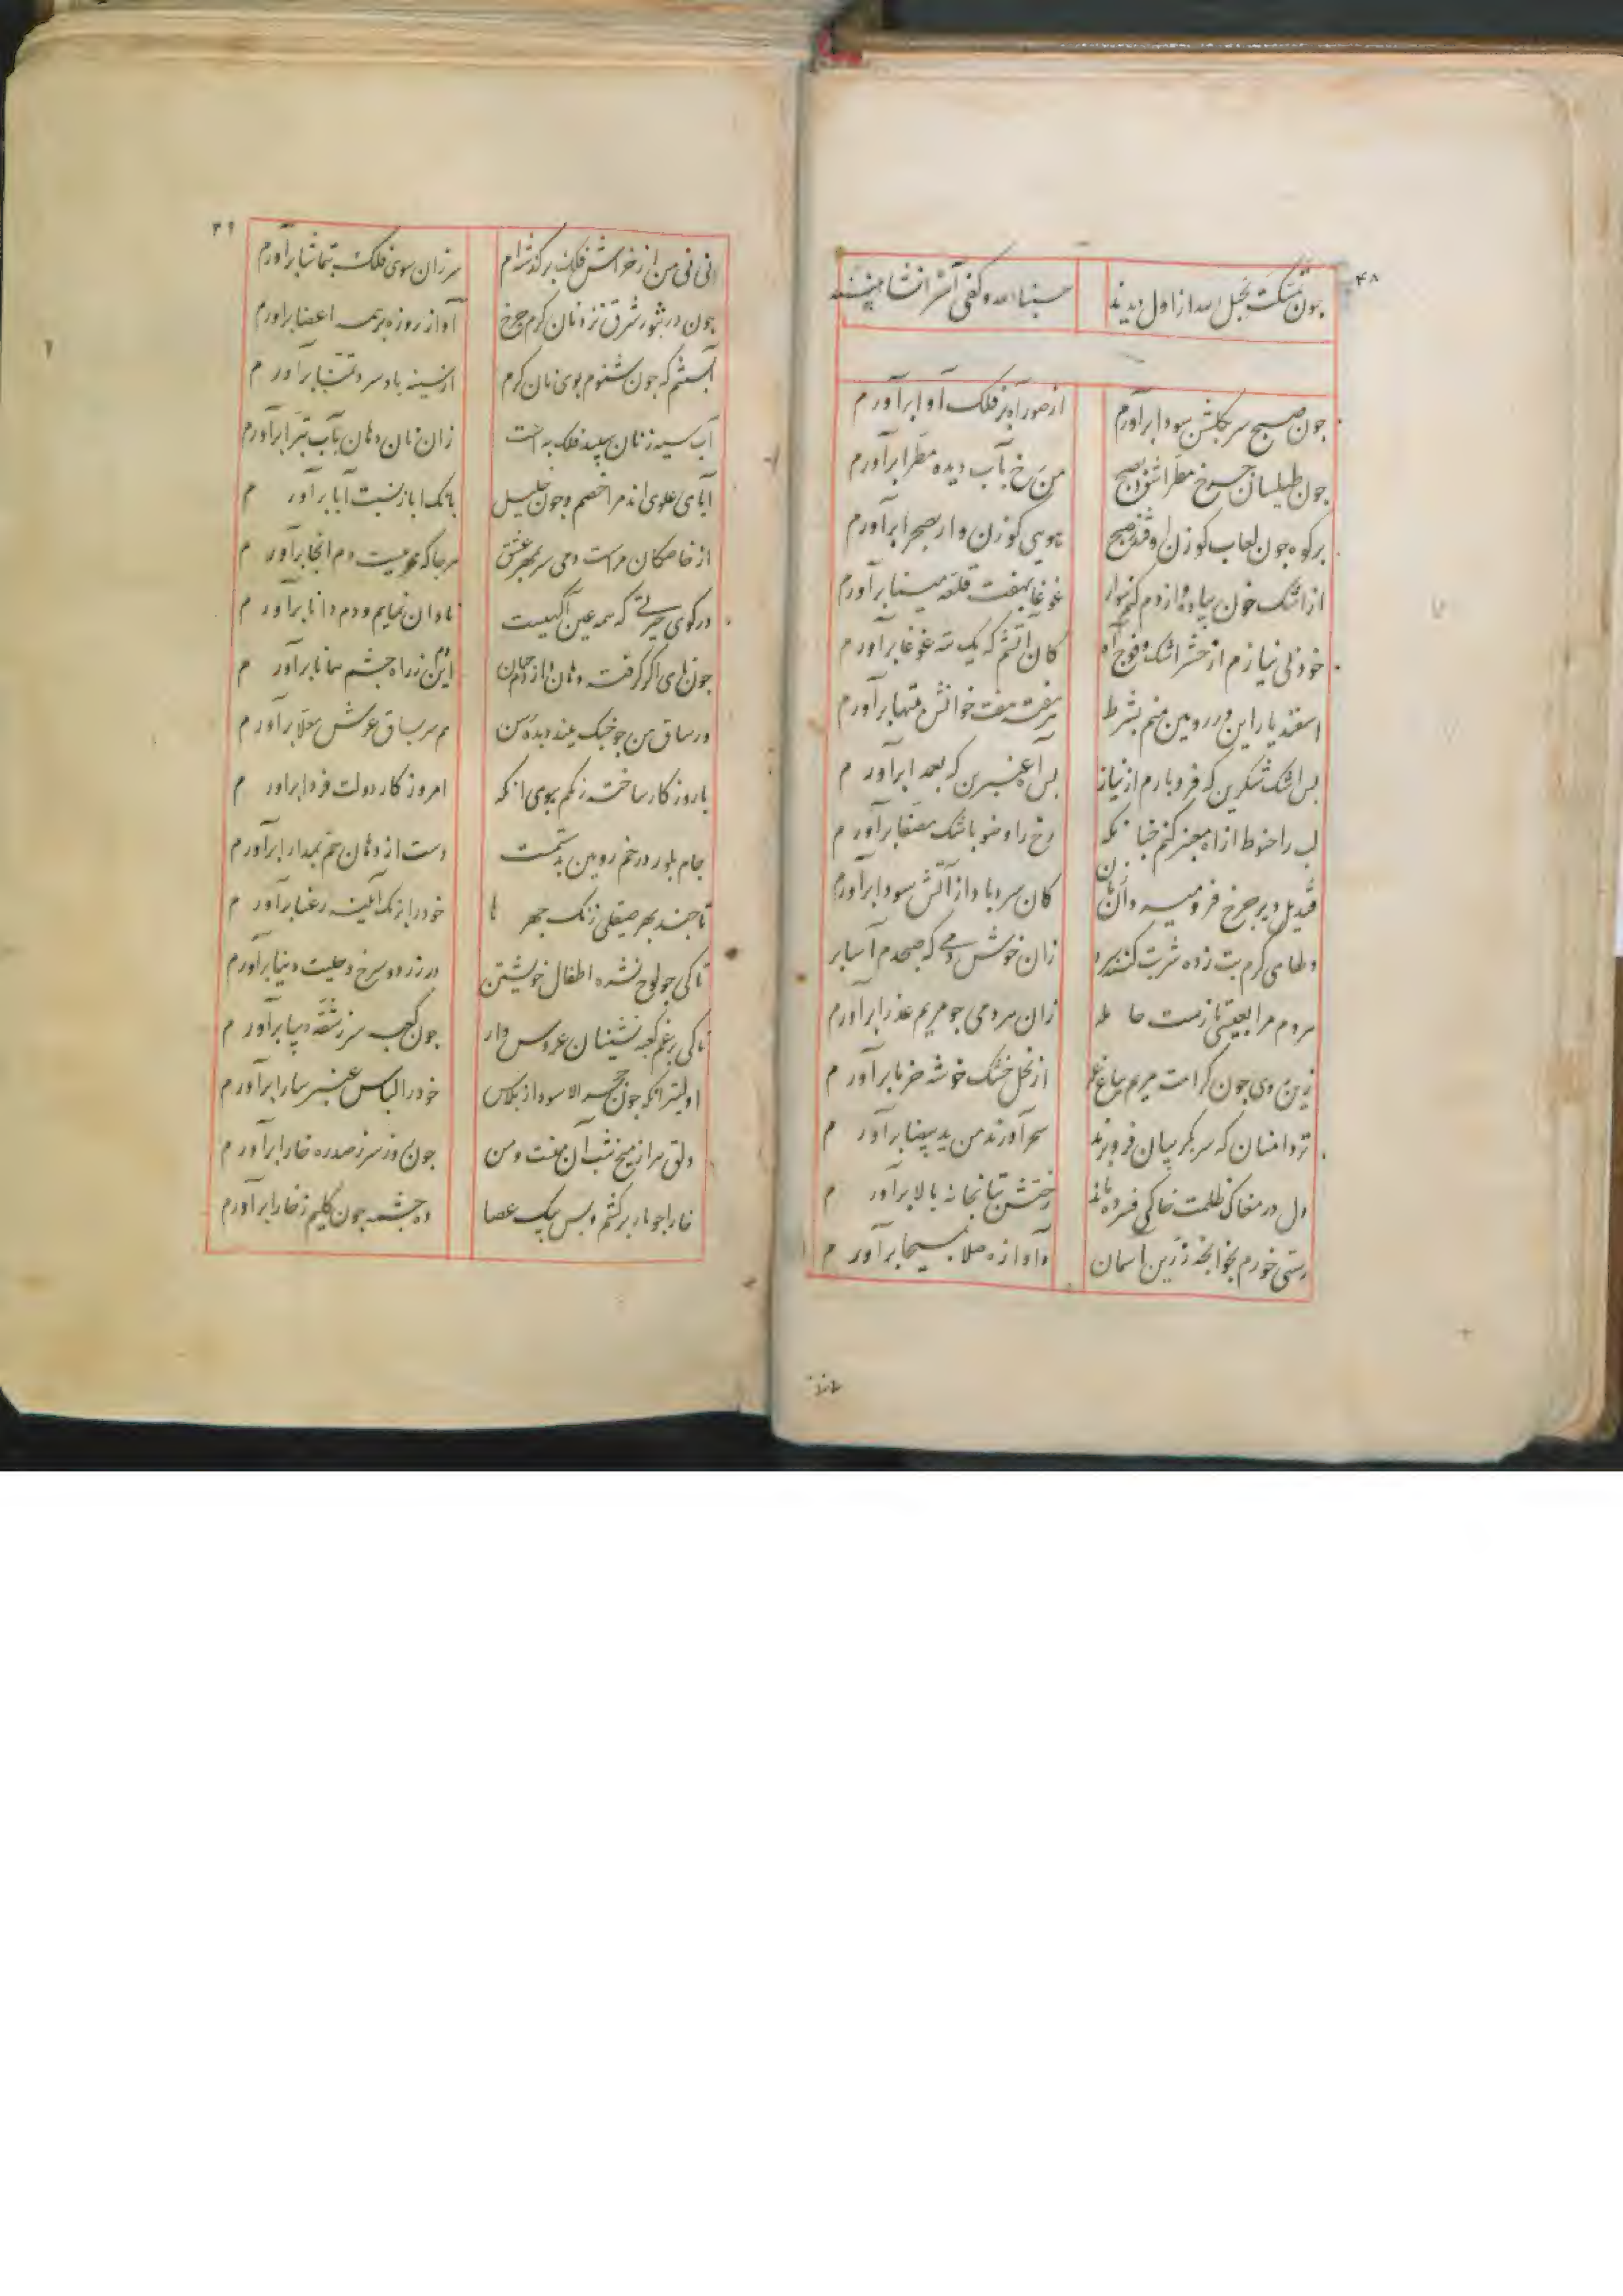 ۴۸
چون تمسکت بحبل الله از اول دیدند حسبنا الله وکفی آخر انشا بینند
جون صبح سر بکلشن سودا برآورم از صور آه بر فلک آوا برآورم
جون طیلسان جرخ مطرا شود بصبح من رخ بآب دیده مطرا برآورم
برکوه جون لعاب کوزن اوفتد بصبح هویی کوزن وار بصحرا برآورم
از اشک خون پیاده و از دم کنم سوار غوغا بهفت قلعه مینا برآورم
خود بی نیازم از حشر اشک و فوج آه کان آتشم که یک تنه غوغا برآورم
اسفندیار این دز رویین منم بشرط هر هفته هفت خوانش تنها برآورم
بس اشک شکرین که فروبارم از نیاز بس آه عنبرین که بعمدا برآورم
لب را حنوط از آه معنبر کنم جنانکه رخ را وضو باشک مصفا برآورم
قندیل دیر جرخ فرومیرد آن زمان کان سرد باد از آتش سودا برآورم
دلهای کرم تب زده را شربت کند زان خوش دمی که صبحدم آسا برآورم
هردم مرا بعیسی تازست حامله زان هر دمی جو مریم عذرا برآورم
زین روی جون کرامت مریم بباغ عمر از نخل خشک خوشه خرما برآورم
تردامنان که سر بکریبان فروبرند سحر آورند من ید بیضا برآورم
دل در مغاک ظلمت خاکی فسرده ماند رختش بتابخانه بالا برآورم
رستی خورم بخوانچه زرین اسمان وآوازه صلا بمسیحا برآورم
۴۹
نی نی من از خراس فلک برکذشته‌ام سر زان سوی فلک بتماشا برآورم
جون در تنور شرق پزد نان کرم جرخ آواز روزه بر همه اعضا برآورم
آبستنم که جون شنوم بوی نان کرم از سینه باد سرد تمنا برآورم
آب سیه ز نان سپید فلک به است زان نان دهان بآب تبرا برآورم
آبای علوی اند مرا خصم و جون خلیل بانک ابا ز نسبت آبا برآورم
از خاصکان مراست دمی سر بمهر عشق هرجا که محرمیست دم انجا برآورم
درکوی حیرتی که همه عین آکهیست نادان نمایم و دم دانا برآورم
جون نای اکر کرفته دهان داردم جهان این دم ز راه جشم همانا برآورم
ور ساق من جو جنک ببندد بده رسن هم سر بساق عرش معلا برآورم
با روزکار ساخته زنکم ببوی انکه امروز کار دولت فردا برآورم
جام بلور در خم رویین بدستمست دست از دهان خم بمدارا برآورم
تا جند بهر صیقلی زنک جهرها خود را بزنک آینه رعنا برآورم
تا کی جو لوح نشره اطفال خویشتن در زرد و سرخ و حلیت دنیا برآورم
تا کی برغم کعبه نشینان عروس وار جون کعبه سر ز شقه دیبا برآورم
اولیتر انکه جون حجر الاسود از بلاس خود را لباس عنبر سارا برآورم
دلق هزار میخ شب آن منست و من جون روز سر ز صدره خارا برآورم
خارا جو مار برکشم و بس بیک عصا ده جشمه جون کلیم ز خارا برآورم